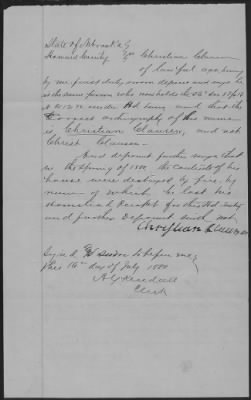 State of Nebraska
Howard County Christian Clausen
of lawful age, being
by me first duly sworn deposes and says he
is the same person who
under Hd being and that the
correct orthography of his name
is, Christian Clausen, and not
Christ Clausen.
And deponent further says that
in the Spring of 1880 the contents of his
house were destroyed by fire, by
reason of which he lost his
Homestead Receipt for this Hd entry
and further Deponent saith not
Christian Clausen
Signed & sworn to before me
this 16th day of July 1880
A G Kendall
Clerk